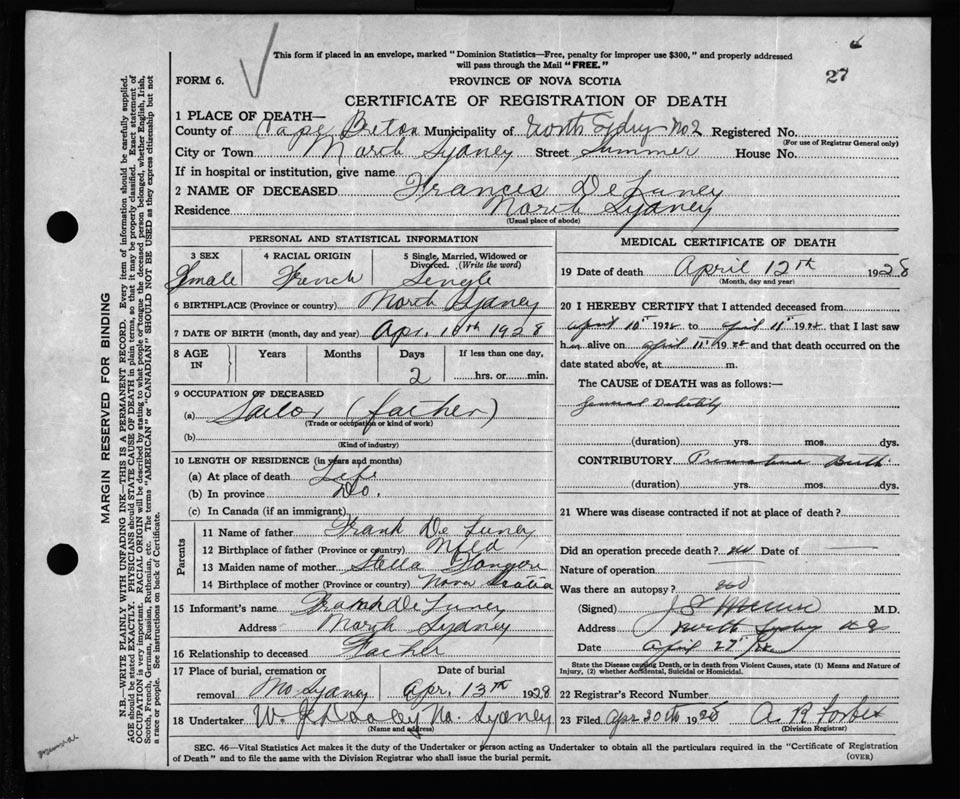 This form if placed in an envelope, marked "Dominion Statistics—Free, penalty for improper use $300," and properly addressed
will pass through the Mail "FREE."
27
FORM 6.
PROVINCE OF NOVA SCOTIA
CERTIFICATE OF REGISTRATION OF DEATH
MARGIN RESERVED FOR BINDING
N.B.—WRITE PLAINLY WITH UNFADING INK—THIS IS A PERMANENT RECORD. Every item of information should be carefully supplied.
AGE should be stated EXACTLY. PHYSICIANS should STATE CAUSE OF DEATH in plain terms, so that it may be properly classified. Exact statement of
OCCUPATION is very important. RACIAL ORIGIN will be described by stating to what people or tongue the deceased person belonged, whether English, Irish,
Scotch, French, German, Russian, Ruthenian, etc. The terms "AMERICAN" or "CANADIAN" SHOULD NOT BE USED as they express citizenship but not
a race or people. See instructions on back of Certificate.
1 PLACE OF DEATH—
County of Cape Breton Municipality of North Sydney No 2 Registered No.
(For use of Registrar General only)
City or Town North Sydney Street Summer House No.
If in hospital or institution, give name
2 NAME OF DECEASED Frances DeLuney
Residence North Sydney
(Usual place of abode)
PERSONAL AND STATISTICAL INFORMATION
3 SEX 4 RACIAL ORIGIN 5 Single, Married, Widowed or
Divorced. (Write the word)
Female French Single
6 BIRTHPLACE (Province or country) North Sydney
7 DATE OF BIRTH (month, day and year) Apr. 10th 1928
8 AGE IN Years Months Days If less than one day,
2 hrs. or min.
9 OCCUPATION OF DECEASED
(a) Sailor (father)
(Trade or occupation or kind of work)
(b)
(Kind of industry)
10 LENGTH OF RESIDENCE (in years and months)
(a) At place of death Life
(b) In province Do.
(c) In Canada (if an immigrant)
Parents
11 Name of father Frank De Luney
12 Birthplace of father (Province or country) Nfld
13 Maiden name of mother Stella
14 Birthplace of mother (Province or country) Nova Scotia
15 Informant's name Frank De Luney
Address North Sydney
16 Relationship to deceased Father
17 Place of burial, cremation or Date of burial
removal No Sydney Apr. 13th 1928
18 Undertaker W. J. Dooley No. Sydney
(Name and address)
MEDICAL CERTIFICATE OF DEATH
19 Date of death April 12th 1928
(Month, day and year)
20 I HEREBY CERTIFY that I attended deceased from
April 10th 1928 to April 11th 1928 that I last saw
him alive on April 11th 1928 and that death occurred on the
date stated above, at m.
The CAUSE OF DEATH was as follows:—
General Debility
(duration) yrs. mos. dys.
CONTRIBUTORY Premature Birth
(duration) yrs. mos. dys.
21 Where was disease contracted if not at place of death?
Did an operation precede death? no Date of
Nature of operation
Was there an autopsy? no
(Signed) M.D.
Address North Sydney N S
Date April 27th
State the Disease causing Death, or in death from Violent Causes, state (1) Means and Nature of
Injury, (2) whether Accidental, Suicidal or Homicidal.
22 Registrar's Record Number
23 Filed Apr 30th 1928 A. R. Forbes
(Division Registrar)
SEC. 46—Vital Statistics Act makes it the duty of the Undertaker or person acting as Undertaker to obtain all the particulars required in the "Certificate of Registration
of Death" and to file the same with the Division Registrar who shall issue the burial permit.
(OVER)